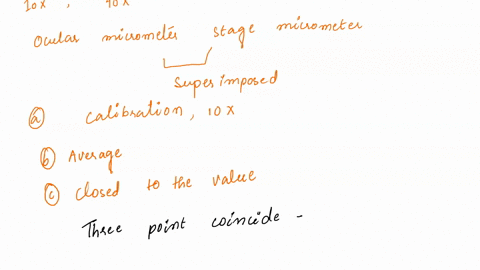 10x , 40x
Ocular micrometer stage micrometer
Superimposed
(a) Calibration, 10x
(b) Average
(c) Closed to the value
Three point coincide -